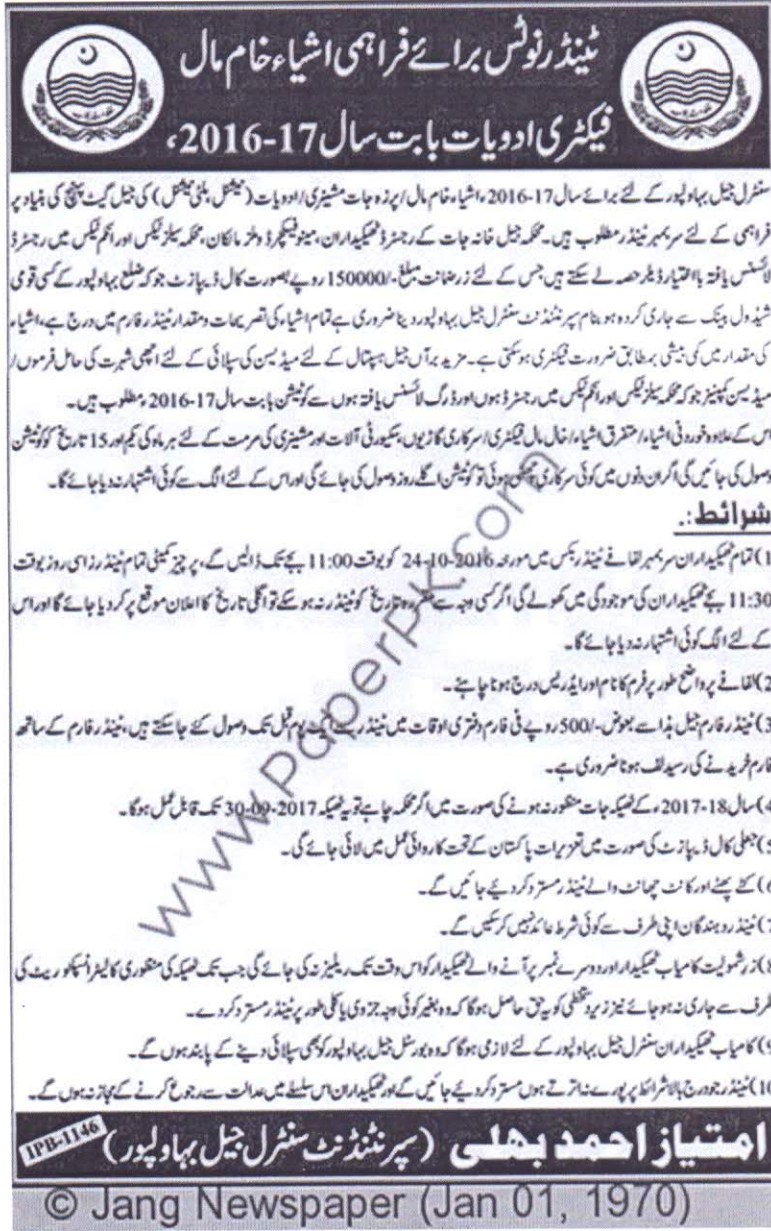 ٹینڈر نوٹس برائے فراہمی اشیاء خام مال
فیکٹری ادویات بابت سال 17-2016،
سنٹرل جیل بہاولپور کے لئے برائے سال 17-2016، اشیاء خام مال/پرزہ جات مشینری/ادویات (نیشنل، ملٹی نیشنل) کی جیل گیٹ پہنچ کی بنیاد پر
فراہمی کے لئے سربمہر ٹینڈر مطلوب ہیں۔ محکمہ جیل خانہ جات کے رجسٹرڈ ٹھیکیداران، مینوفیکچرڈ و ملز مالکان، محکمہ سیلز ٹیکس اور انکم ٹیکس میں رجسٹرڈ
لائسنس یافتہ بااختیار ڈیلر حصہ لے سکتے ہیں جس کے لئے زرضمانت مبلغ -/150000 روپے بصورت کال ڈیپازٹ جو کہ ضلع بہاولپور کے کسی قومی
شیڈول بینک سے جاری کردہ ہو بنام سپرنٹنڈنٹ سنٹرل جیل بہاولپور دینا ضروری ہے تمام اشیاء کی تصریحات و مقدار ٹینڈر فارم میں درج ہے، اشیاء
کی مقدار میں کمی بیشی بمطابق ضرورت فیکٹری ہوسکتی ہے۔ مزید برآں جیل ہسپتال کے لئے میڈیسن کی سپلائی کے لئے اچھی شہرت کی حامل فرموں/
میڈیسن کمپنیز جو کہ محکمہ سیلز ٹیکس اور انکم ٹیکس میں رجسٹرڈ ہوں اور ڈرگ لائسنس یافتہ ہوں سے کوٹیشن بابت سال 17-2016، مطلوب ہیں۔
اس کے علاوہ خوردنی اشیاء/متفرق اشیاء/خال مال فیکٹری/سرکاری گاڑیوں، سکیورٹی آلات اور مشینری کی مرمت کے لئے ہر ماہ کی یکم اور 15 تاریخ کو کوٹیشن
وصول کی جائیں گی اگر ان دنوں میں کوئی سرکاری چھٹی ہوئی تو کوٹیشن اگلے روز وصول کی جائے گی اور اس کے لئے الگ سے کوئی اشتہار نہ دیا جائے گا۔
شرائط:.
1) تمام ٹھیکیداران سربمہر لفافے ٹینڈر بکس میں مورخہ 24-10-2016 کو بوقت 11:00 بجے تک ڈالیں گے، پرچیز کمیٹی تمام ٹینڈرز اسی روز بوقت
11:30 بجے ٹھیکیداران کی موجودگی میں کھولے گی اگر کسی وجہ سے مقررہ تاریخ کو ٹینڈر نہ ہوسکے تو اگلی تاریخ کا اعلان موقع پر کر دیا جائے گا اور اس
کے لئے الگ کوئی اشتہار نہ دیا جائے گا۔
2) لفافے پر واضح طور پر فرم کا نام اور ایڈریس درج ہونا چاہئے۔
3) ٹینڈر فارم جیل ہذا سے بعوض -/500 روپے فی فارم دفتری اوقات میں ٹینڈر سے ایک یوم قبل تک وصول کئے جاسکتے ہیں، ٹینڈر فارم کے ساتھ
فارم خریدنے کی رسید لف ہونا ضروری ہے۔
4) سال 18-2017ء کے ٹھیکہ جات منظور نہ ہونے کی صورت میں اگر محکمہ چاہے تو یہ ٹھیکہ 30-09-2017 تک قابل عمل ہوگا۔
5) جعلی کال ڈیپازٹ کی صورت میں تعزیرات پاکستان کے تحت کاروائی عمل میں لائی جائے گی۔
6) کٹے پھٹے اور کانٹ چھانٹ والے ٹینڈر مسترد کردئیے جائیں گے۔
7) ٹینڈر دہندگان اپنی طرف سے کوئی شرط عائد نہیں کرسکیں گے۔
8) زرشمولیت کامیاب ٹھیکیدار اور دوسرے نمبر پر آنے والے ٹھیکیدار کو اس وقت تک ریلیز نہ کی جائے گی جب تک ٹھیکہ کی منظوری کا لیٹر انسپکٹوریٹ کی
طرف سے جاری نہ ہوجائے نیز زیر دستخطی کو یہ حق حاصل ہوگا کہ وہ بغیر کوئی وجہ جزوی یا کلی طور پر ٹینڈر مسترد کردے۔
9) کامیاب ٹھیکیداران سنٹرل جیل بہاولپور کے لئے لازمی ہوگا کہ وہ بورسٹل جیل بہاولپور کو بھی سپلائی دینے کے پابند ہوں گے۔
10) ٹینڈر جو درج بالا شرائط پر پورے نہ اترتے ہوں مسترد کردئیے جائیں گے اور ٹھیکیداران اس سلسلے میں عدالت سے رجوع کرنے کے مجاز نہ ہوں گے۔
امتیاز احمد بھلی (سپرنٹنڈنٹ سنٹرل جیل بہاولپور)
IPB-1146
www.PaperPK.com
© Jang Newspaper (Jan 01, 1970)